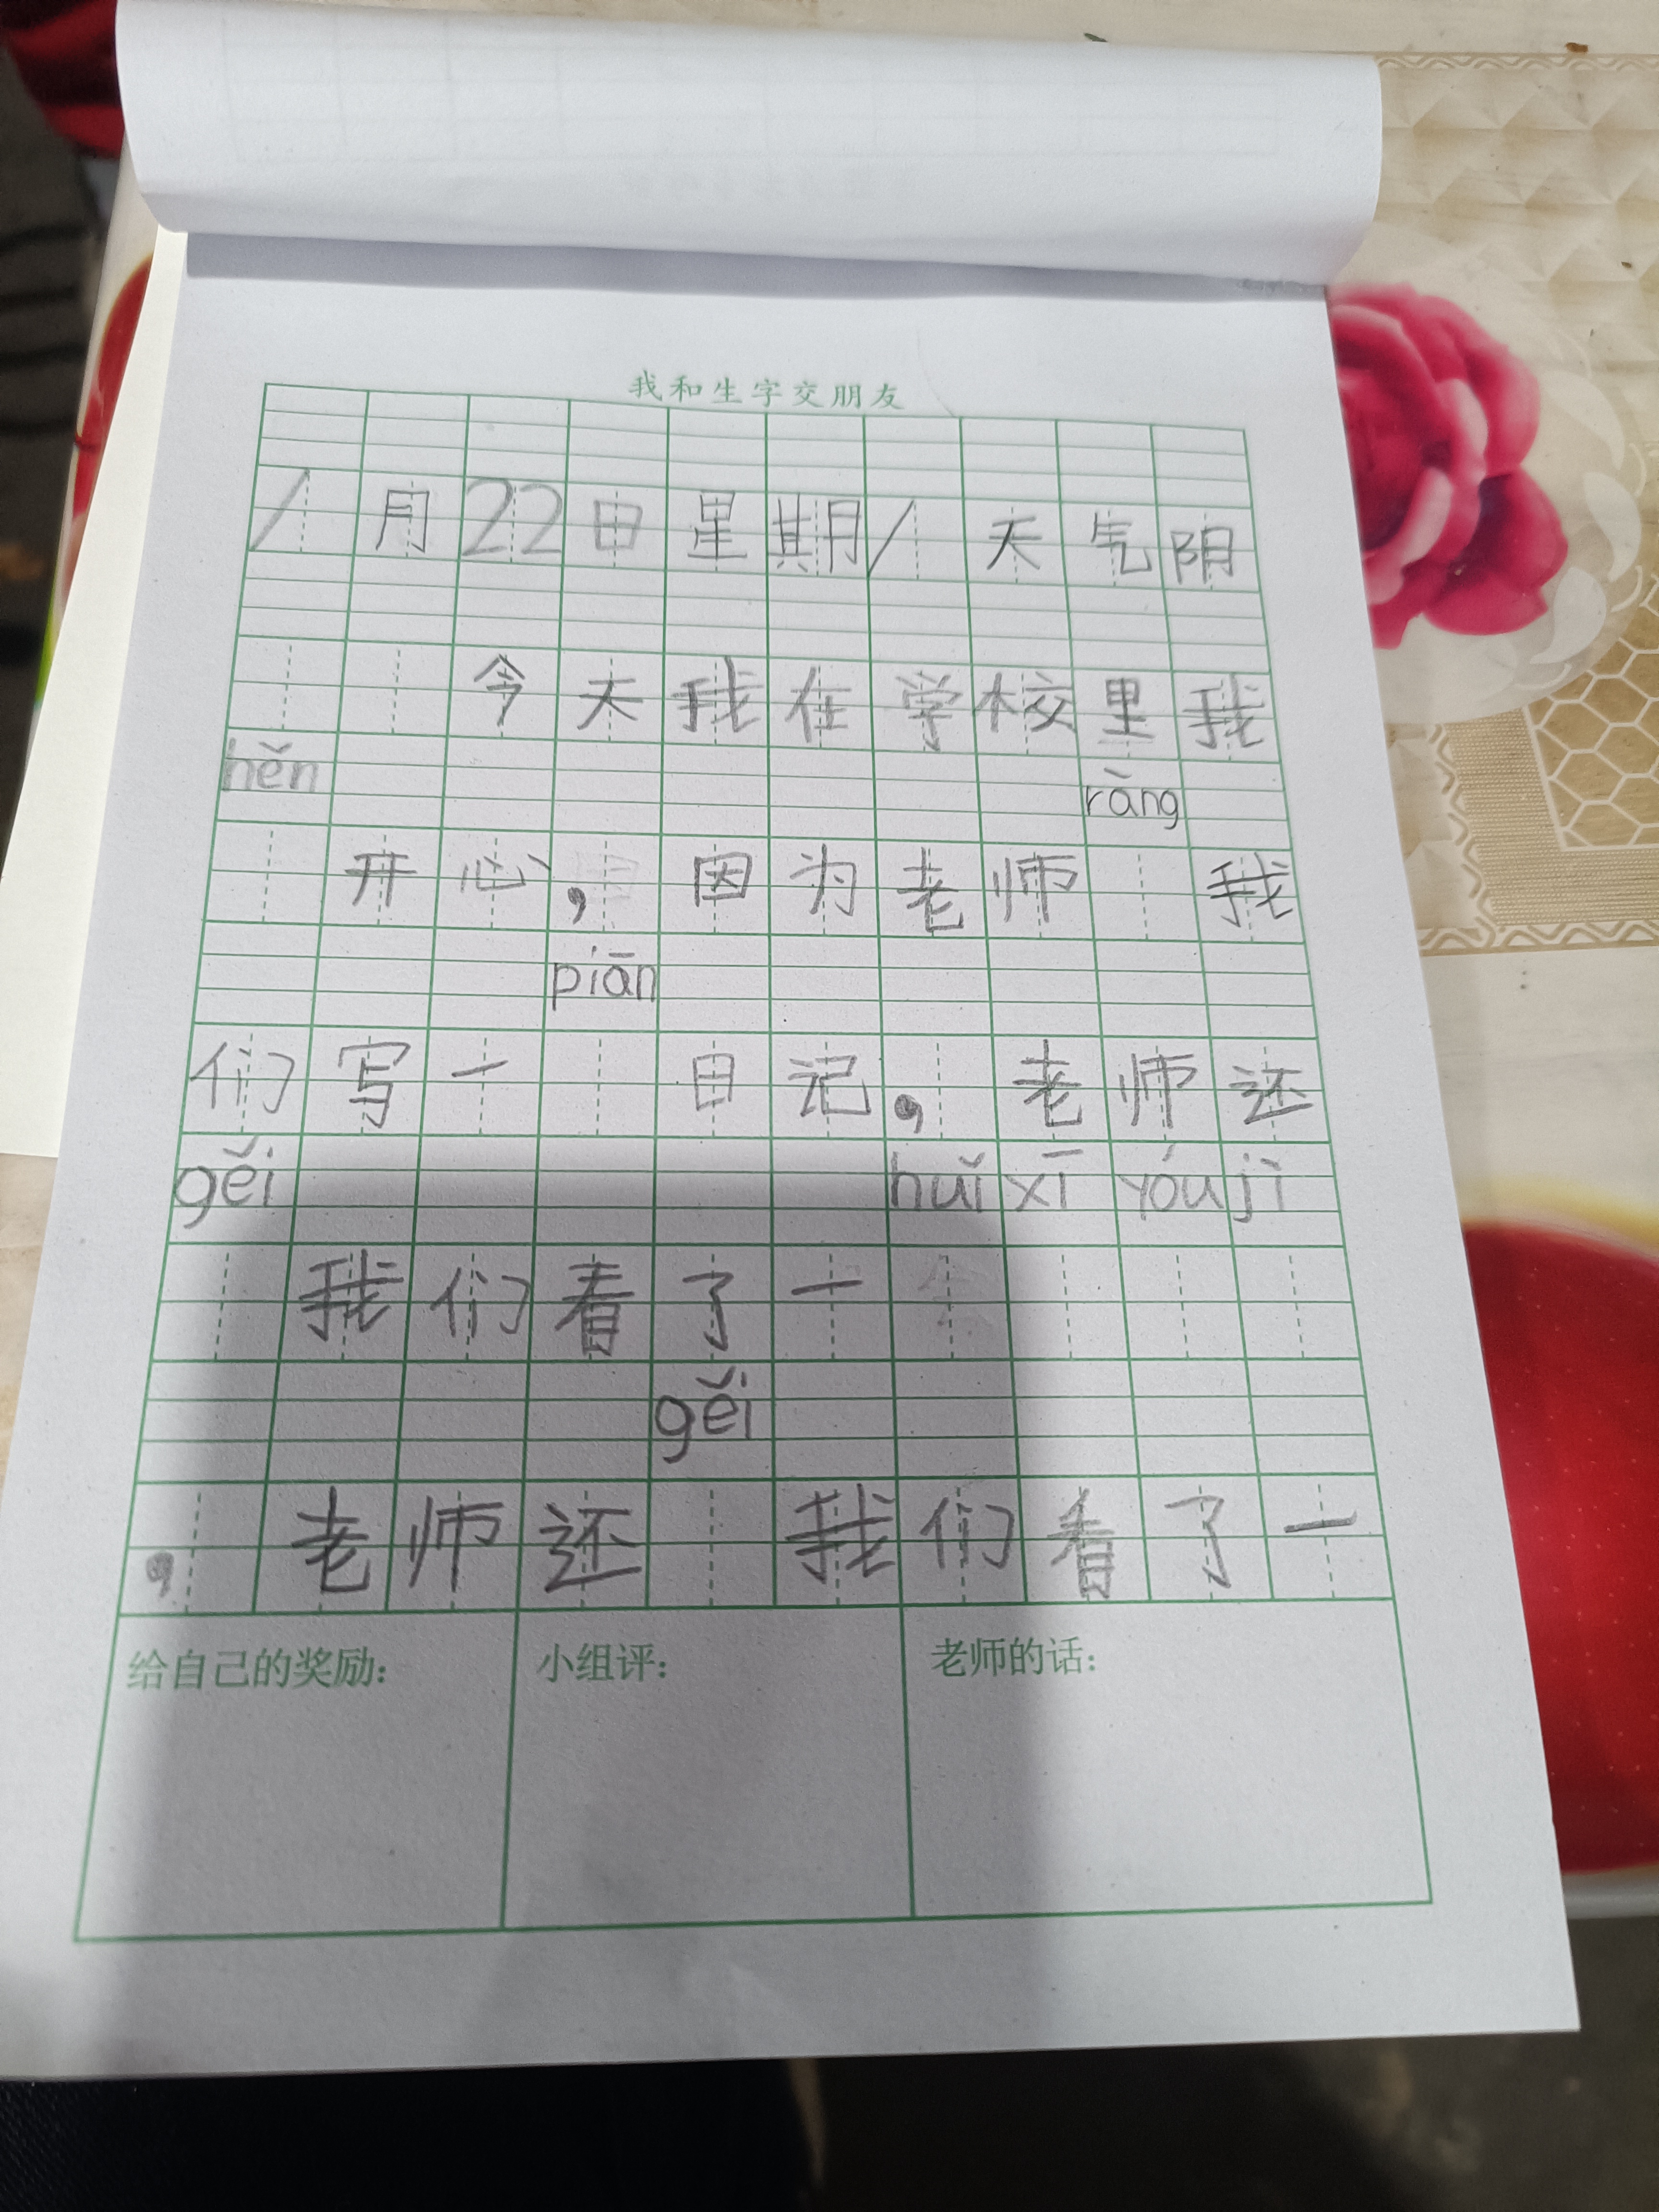 我和生字交朋友
1月22日星期1天气阴
今天我在学校里我
hěn ràng
开心，因为老师 我
piān
们写一 日记，老师还
gěi huǐ xī yóu jì
我们看了一
gěi
，老师还 我们看了一
给自己的奖励： 小组评： 老师的话：